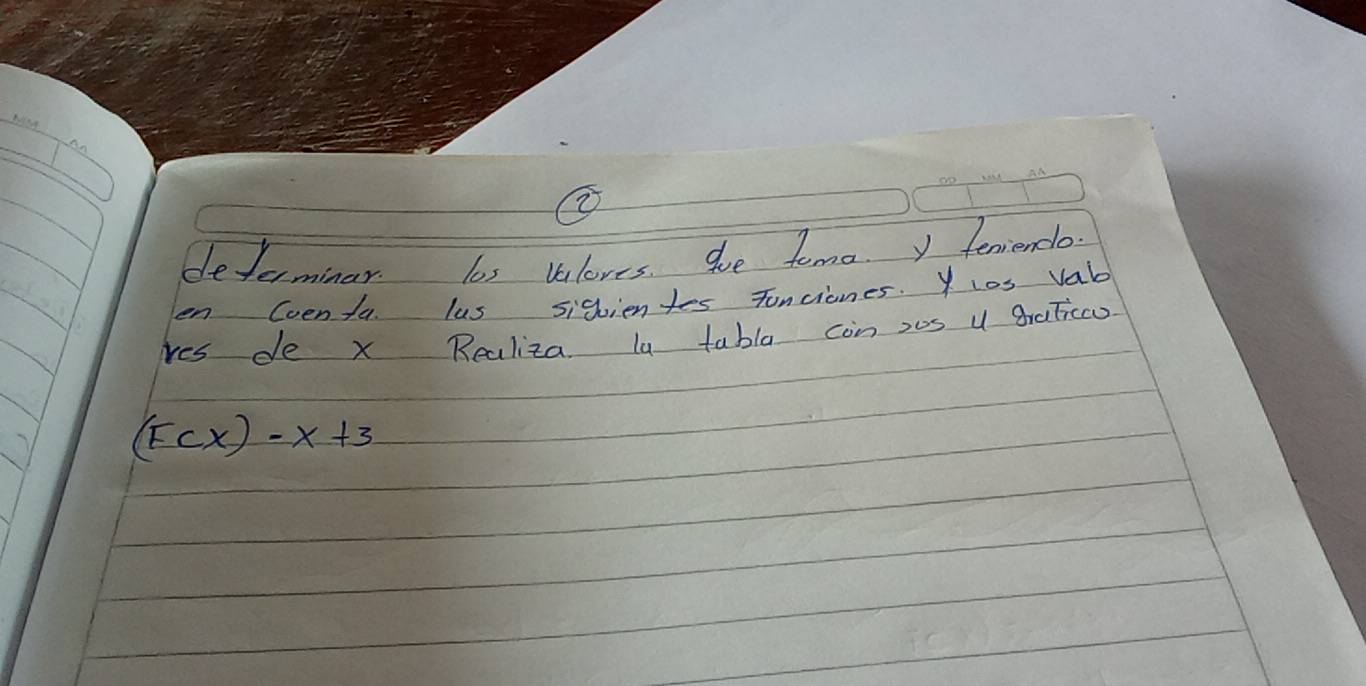 MM AA
DD MM AA
2
determinar. los valores. que toma. y teniendo.
en cuenta. las siguientes funciones. y los valo
res de x Realiza. la tabla con sus y graficas
(F(x) - x + 3